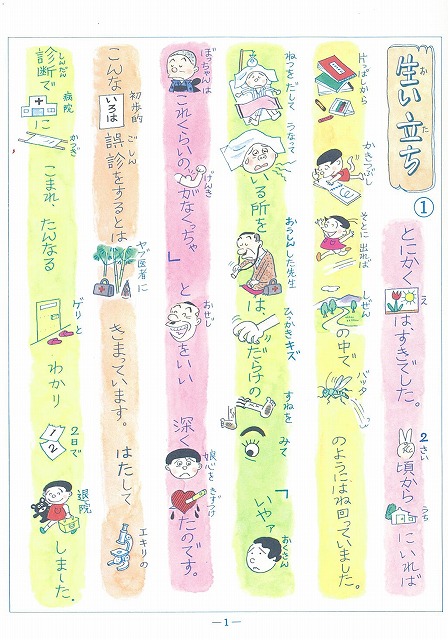 生い立ち
お
た
①
とにかく
え
は、すきでした。
2さい
頃から
うち
にいれば
片っぱしから
かきつぶし
そとに出れば
しぜん
の中で
バッタ
のようにはね回っていました。
ねつをだして
うなって
いる所を
おうしんした先生
は、
ひっかきキズ
だらけの
すねを
みて
「いやァ
おくさん
ぼっちゃんは
これくらいの
げんき
がなくっちゃ」と
おせじ
をいい
深く
娘心を
きずつけ
たのです。
こんな
初歩的
いろは
ごしん
誤診をするとは
ヤブ医者に
きまっています。
はたして
エキリの
しんだん
診断で
病院
に
かつぎ
こまれ、たんなる
ゲリと
わかり
2日で
1
2
退院
しました。
—1—